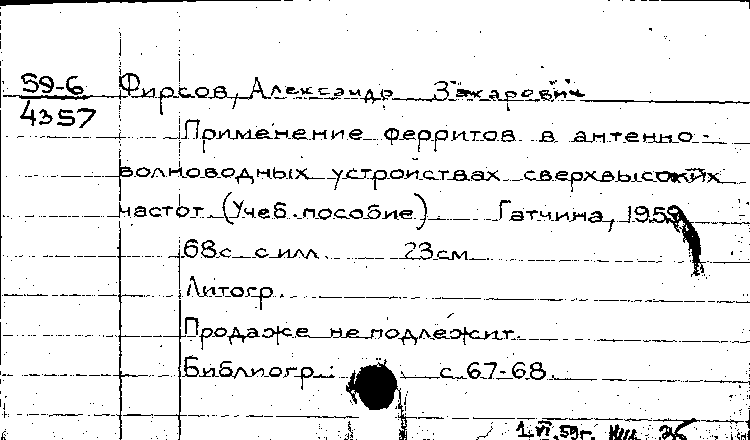 59-6 Фирсов, Александр Захарович
4357
Применение ферритов в антенно-
волноводных устройствах сверхвысоких
частот. (Учеб. пособие). Гатчина, 1959
68 с. с илл. 23 см
Литогр.
Продаже не подлежит.
Библиогр.: с. 67-68.
1.VI.59г.